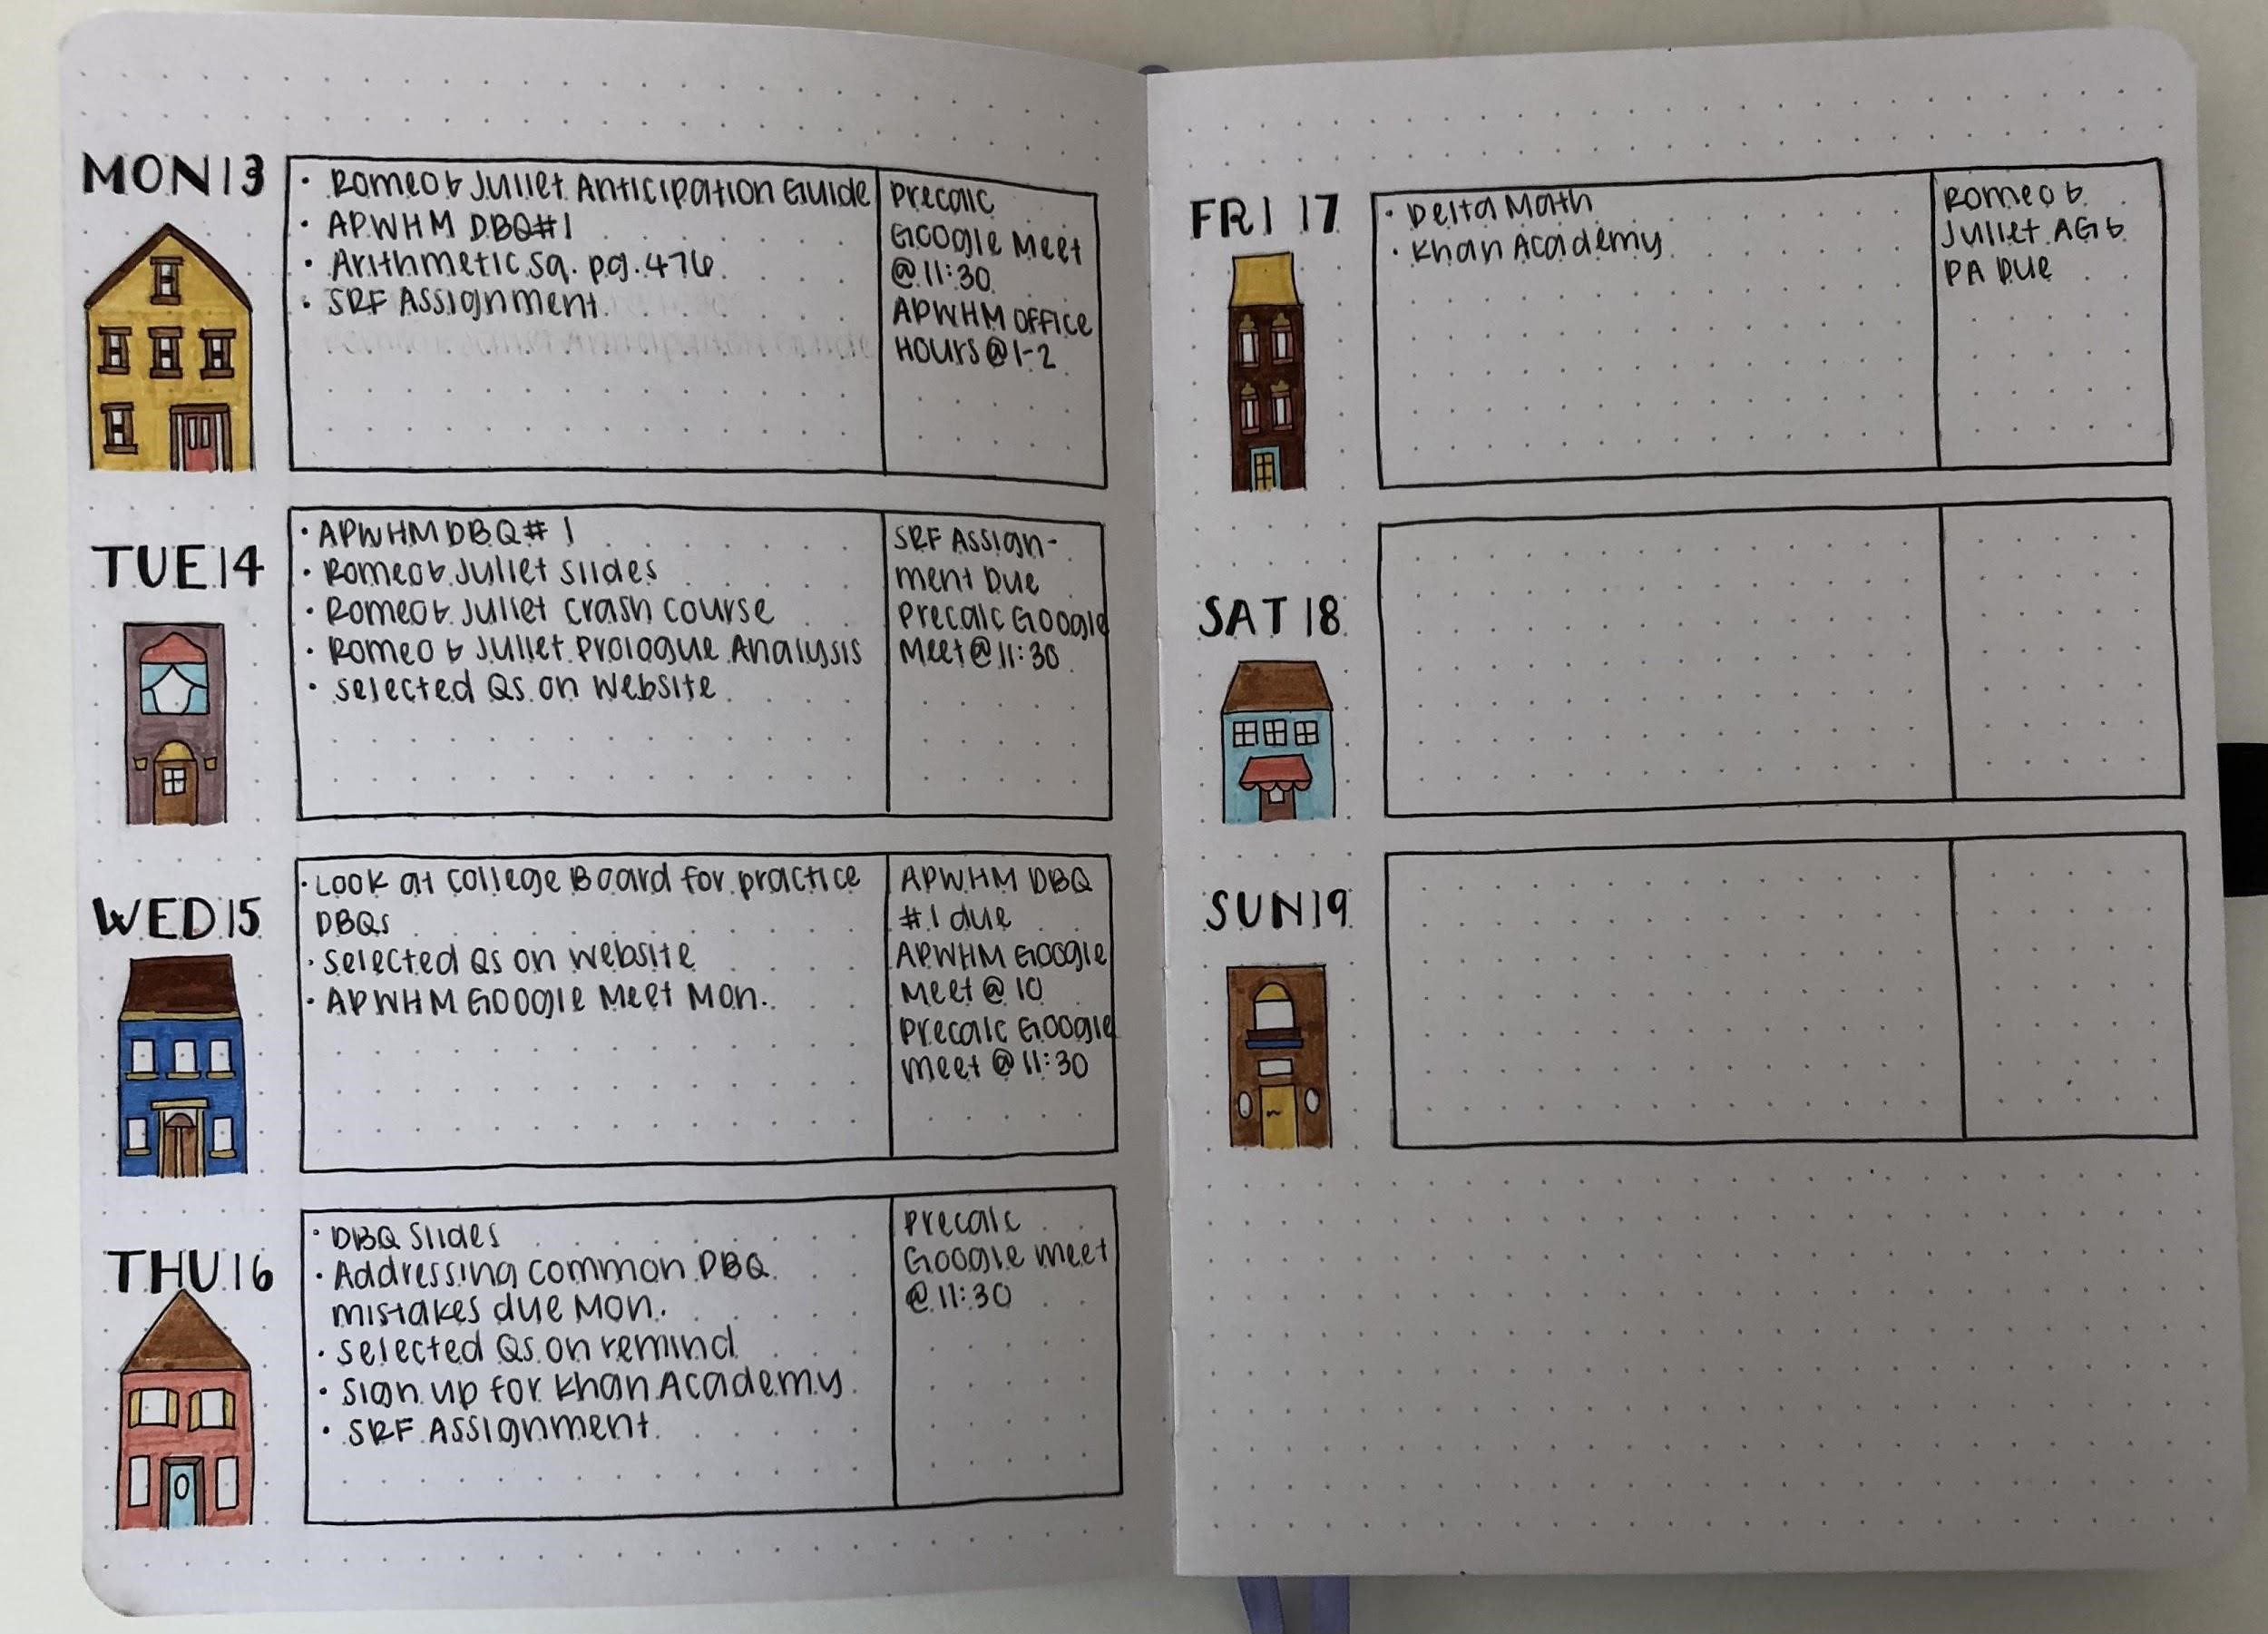 MON 13
• Romeo & Juliet Anticipation Guide
• APWHM DBQ #1
• Arithmetic sq. pg. 476
• SRF Assignment
Precalc
Google Meet
@ 11:30
APWHM Office
Hours @ 1-2
TUE 14
• APWHM DBQ #1
• Romeo & Juliet slides
• Romeo & Juliet crash course
• Romeo & Juliet Prologue Analysis
• selected Qs on website
SRF Assign-
ment Due
Precalc Google
Meet @ 11:30
WED 15
• Look at College Board for practice
DBQs
• selected Qs on website
• APWHM Google Meet Mon.
APWHM DBQ
#1 due
APWHM Google
Meet @ 10
Precalc Google
meet @ 11:30
THU 16
• DBQ Slides
• Addressing common DBQ
mistakes due Mon.
• selected Qs on remind
• sign up for Khan Academy
• SRF Assignment
Precalc
Google meet
@ 11:30
FRI 17
• Delta Math
• Khan Academy
Romeo &
Juliet AG &
PA Due
SAT 18
SUN 19